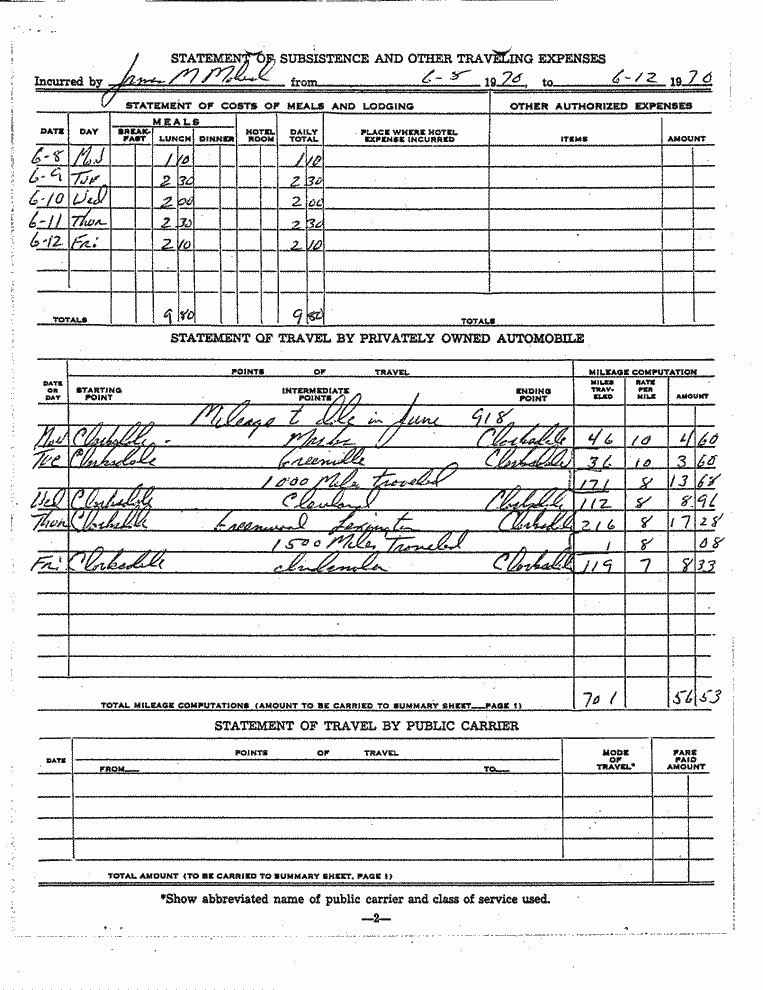 STATEMENT OF SUBSISTENCE AND OTHER TRAVELING EXPENSES
Incurred by James M from 6-8 1970, to 6-12 1970
STATEMENT OF COSTS OF MEALS AND LODGING OTHER AUTHORIZED EXPENSES
DATE DAY MEALS BREAK-FAST LUNCH DINNER HOTEL ROOM DAILY TOTAL PLACE WHERE HOTEL EXPENSE INCURRED ITEMS AMOUNT
6-8 1 10 1 10
6-9 Tue 2 30 2 30
6-10 Wed 2 00 2 00
6-11 Thur 2 30 2 30
6-12 Fri 2 10 2 10
TOTALS 9 80 9 80 TOTALS
STATEMENT OF TRAVEL BY PRIVATELY OWNED AUTOMOBILE
POINTS OF TRAVEL MILEAGE COMPUTATION
DATE OR DAY STARTING POINT INTERMEDIATE POINTS ENDING POINT MILES TRAV-ELED RATE PER MILE AMOUNT
Mileage to date in June 918
Clarksdale - Marks Clarksdale 46 10 4 60
Tue Clarksdale Greenville Clarksdale 36 10 3 60
1000 Miles traveled 171 8 13 68
Wed Clarksdale Cleveland Clarksdale 112 8 8 96
Thur Clarksdale Greenwood Lexington Clarksdale 216 8 17 28
1500 Miles Traveled 1 8 08
Fri Clarksdale Indianola Clarksdale 119 7 8 33
TOTAL MILEAGE COMPUTATIONS (AMOUNT TO BE CARRIED TO SUMMARY SHEET—PAGE 1) 701 56 53
STATEMENT OF TRAVEL BY PUBLIC CARRIER
DATE POINTS OF TRAVEL MODE OF TRAVEL* FARE PAID AMOUNT
FROM— TO—
TOTAL AMOUNT (TO BE CARRIED TO SUMMARY SHEET, PAGE 1)
*Show abbreviated name of public carrier and class of service used.
—2—